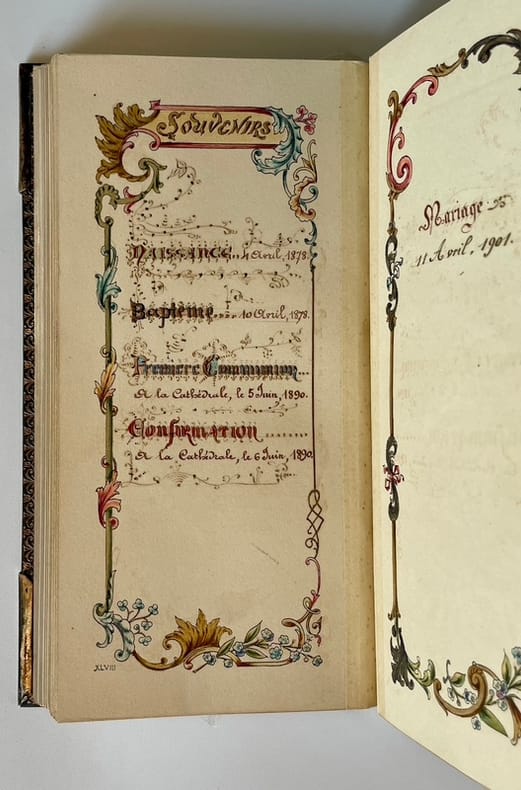 Souvenirs
Naissance... 4 Avril, 1878.
Baptême.... 10 Avril, 1878.
Première Communion...
A la Cathédrale, le 5 Juin, 1890.
Confirmation ........
A la Cathédrale, le 6 Juin, 1890.
XLVIII
Mariage
11 Avril, 1901.